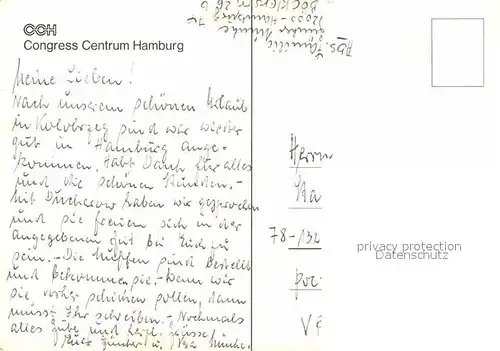 CCH
Congress Centrum Hamburg
Meine Lieben!
Nach unserem schönen Urlaub
in Kolobrzeg sind wir wieder
gut in Hamburg ange-
kommen. Habt Dank für alles
und die schönen Stunden. -
Mit haben wir gesprochen
und sie freuen sich in der
angegebenen Zeit bei Euch zu
sein. - Die sind bestellt
und bekommen sie. - Wenn wir
sie vorher schicken sollen, dann
müsst Ihr schreiben. - Nochmals
alles Gute und herzl. Grüsse!
Eure Günter u.
Abs. Familie
Günter
2000 - Hamburg 74
Herrn
78-132
privacy protection
Datenschutz